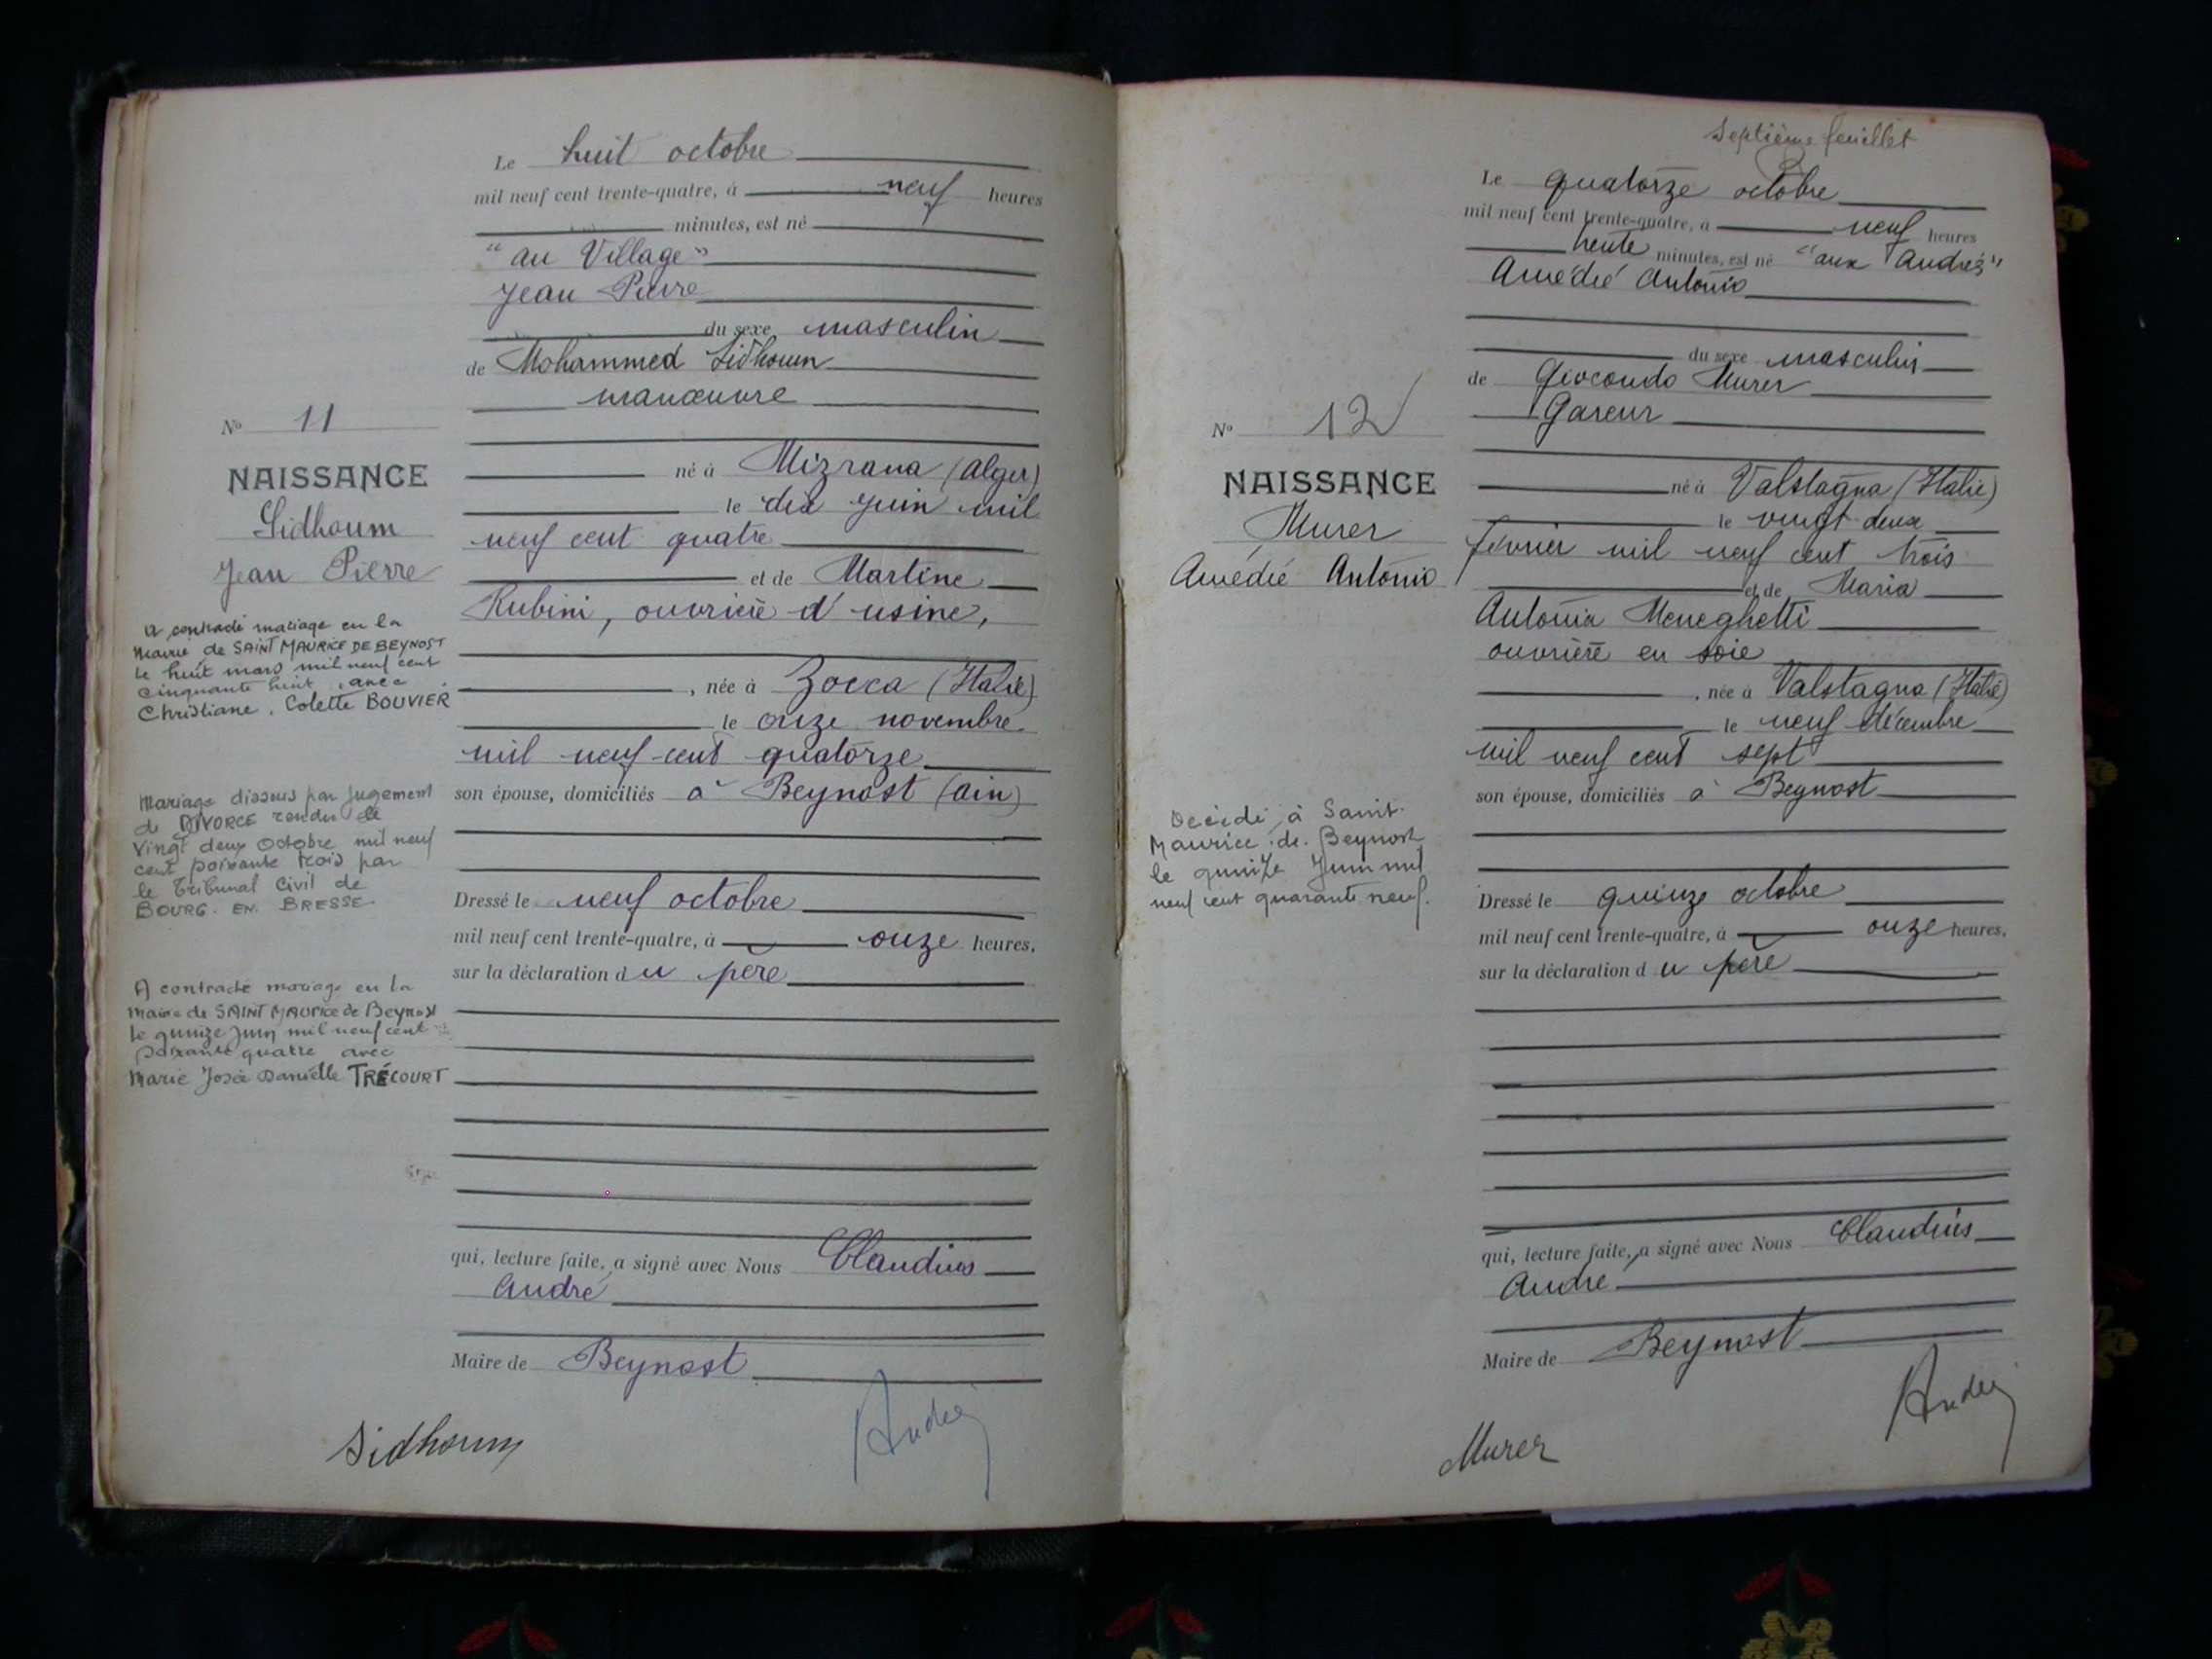 Le huit octobre
mil neuf cent trente-quatre, à neuf heures
minutes, est né
"au Village"
Jean Pierre
du sexe masculin
de Mohammed Sidhoum
manœuvre
né à Mizrana (Alger)
le dix juin mil
neuf cent quatre
et de Martine
Rubini, ouvrière d'usine,
, née à Zocca (Italie)
le onze novembre
mil neuf cent quatorze
son épouse, domiciliés à Beynost (Ain)
Dressé le neuf octobre
mil neuf cent trente-quatre, à onze heures,
sur la déclaration du père
qui, lecture faite, a signé avec Nous Claudius
André
Maire de Beynost
Sidhoum
André
No 11
NAISSANCE
Sidhoum
Jean Pierre
A contracté mariage en la
Mairie de SAINT MAURICE DE BEYNOST
le huit mars mil neuf cent
cinquante huit, avec
Christiane, Colette BOUVIER
Mariage dissous par jugement
de DIVORCE rendu le
vingt deux Octobre mil neuf
cent soixante trois par
le Tribunal Civil de
BOURG. EN. BRESSE.
A contracté mariage en la
Mairie de SAINT MAURICE de Beynost
le quinze juin mil neuf cent
soixante quatre avec
Marie Josée Danielle TRÉCOURT
septième feuillet
Le quatorze octobre
mil neuf cent trente-quatre, à neuf heures
trente minutes, est né "aux Andrés"
Amédée Antonio
du sexe masculin
de Giocondo Murer
Gareur
né à Valstagna (Italie)
le vingt deux
février mil neuf cent trois
et de Maria
Antonia Meneghetti
ouvrière en soie
, née à Valstagna (Italie)
le neuf décembre
mil neuf cent sept
son épouse, domiciliés à Beynost
Dressé le quinze octobre
mil neuf cent trente-quatre, à onze heures,
sur la déclaration du père
qui, lecture faite, a signé avec Nous Claudius
André
Maire de Beynost
Murer
André
No 12
NAISSANCE
Murer
Amédée Antonio
Décédé à Saint.
Maurice. de. Beynost
le quinze Juin mil
neuf cent quarante neuf.